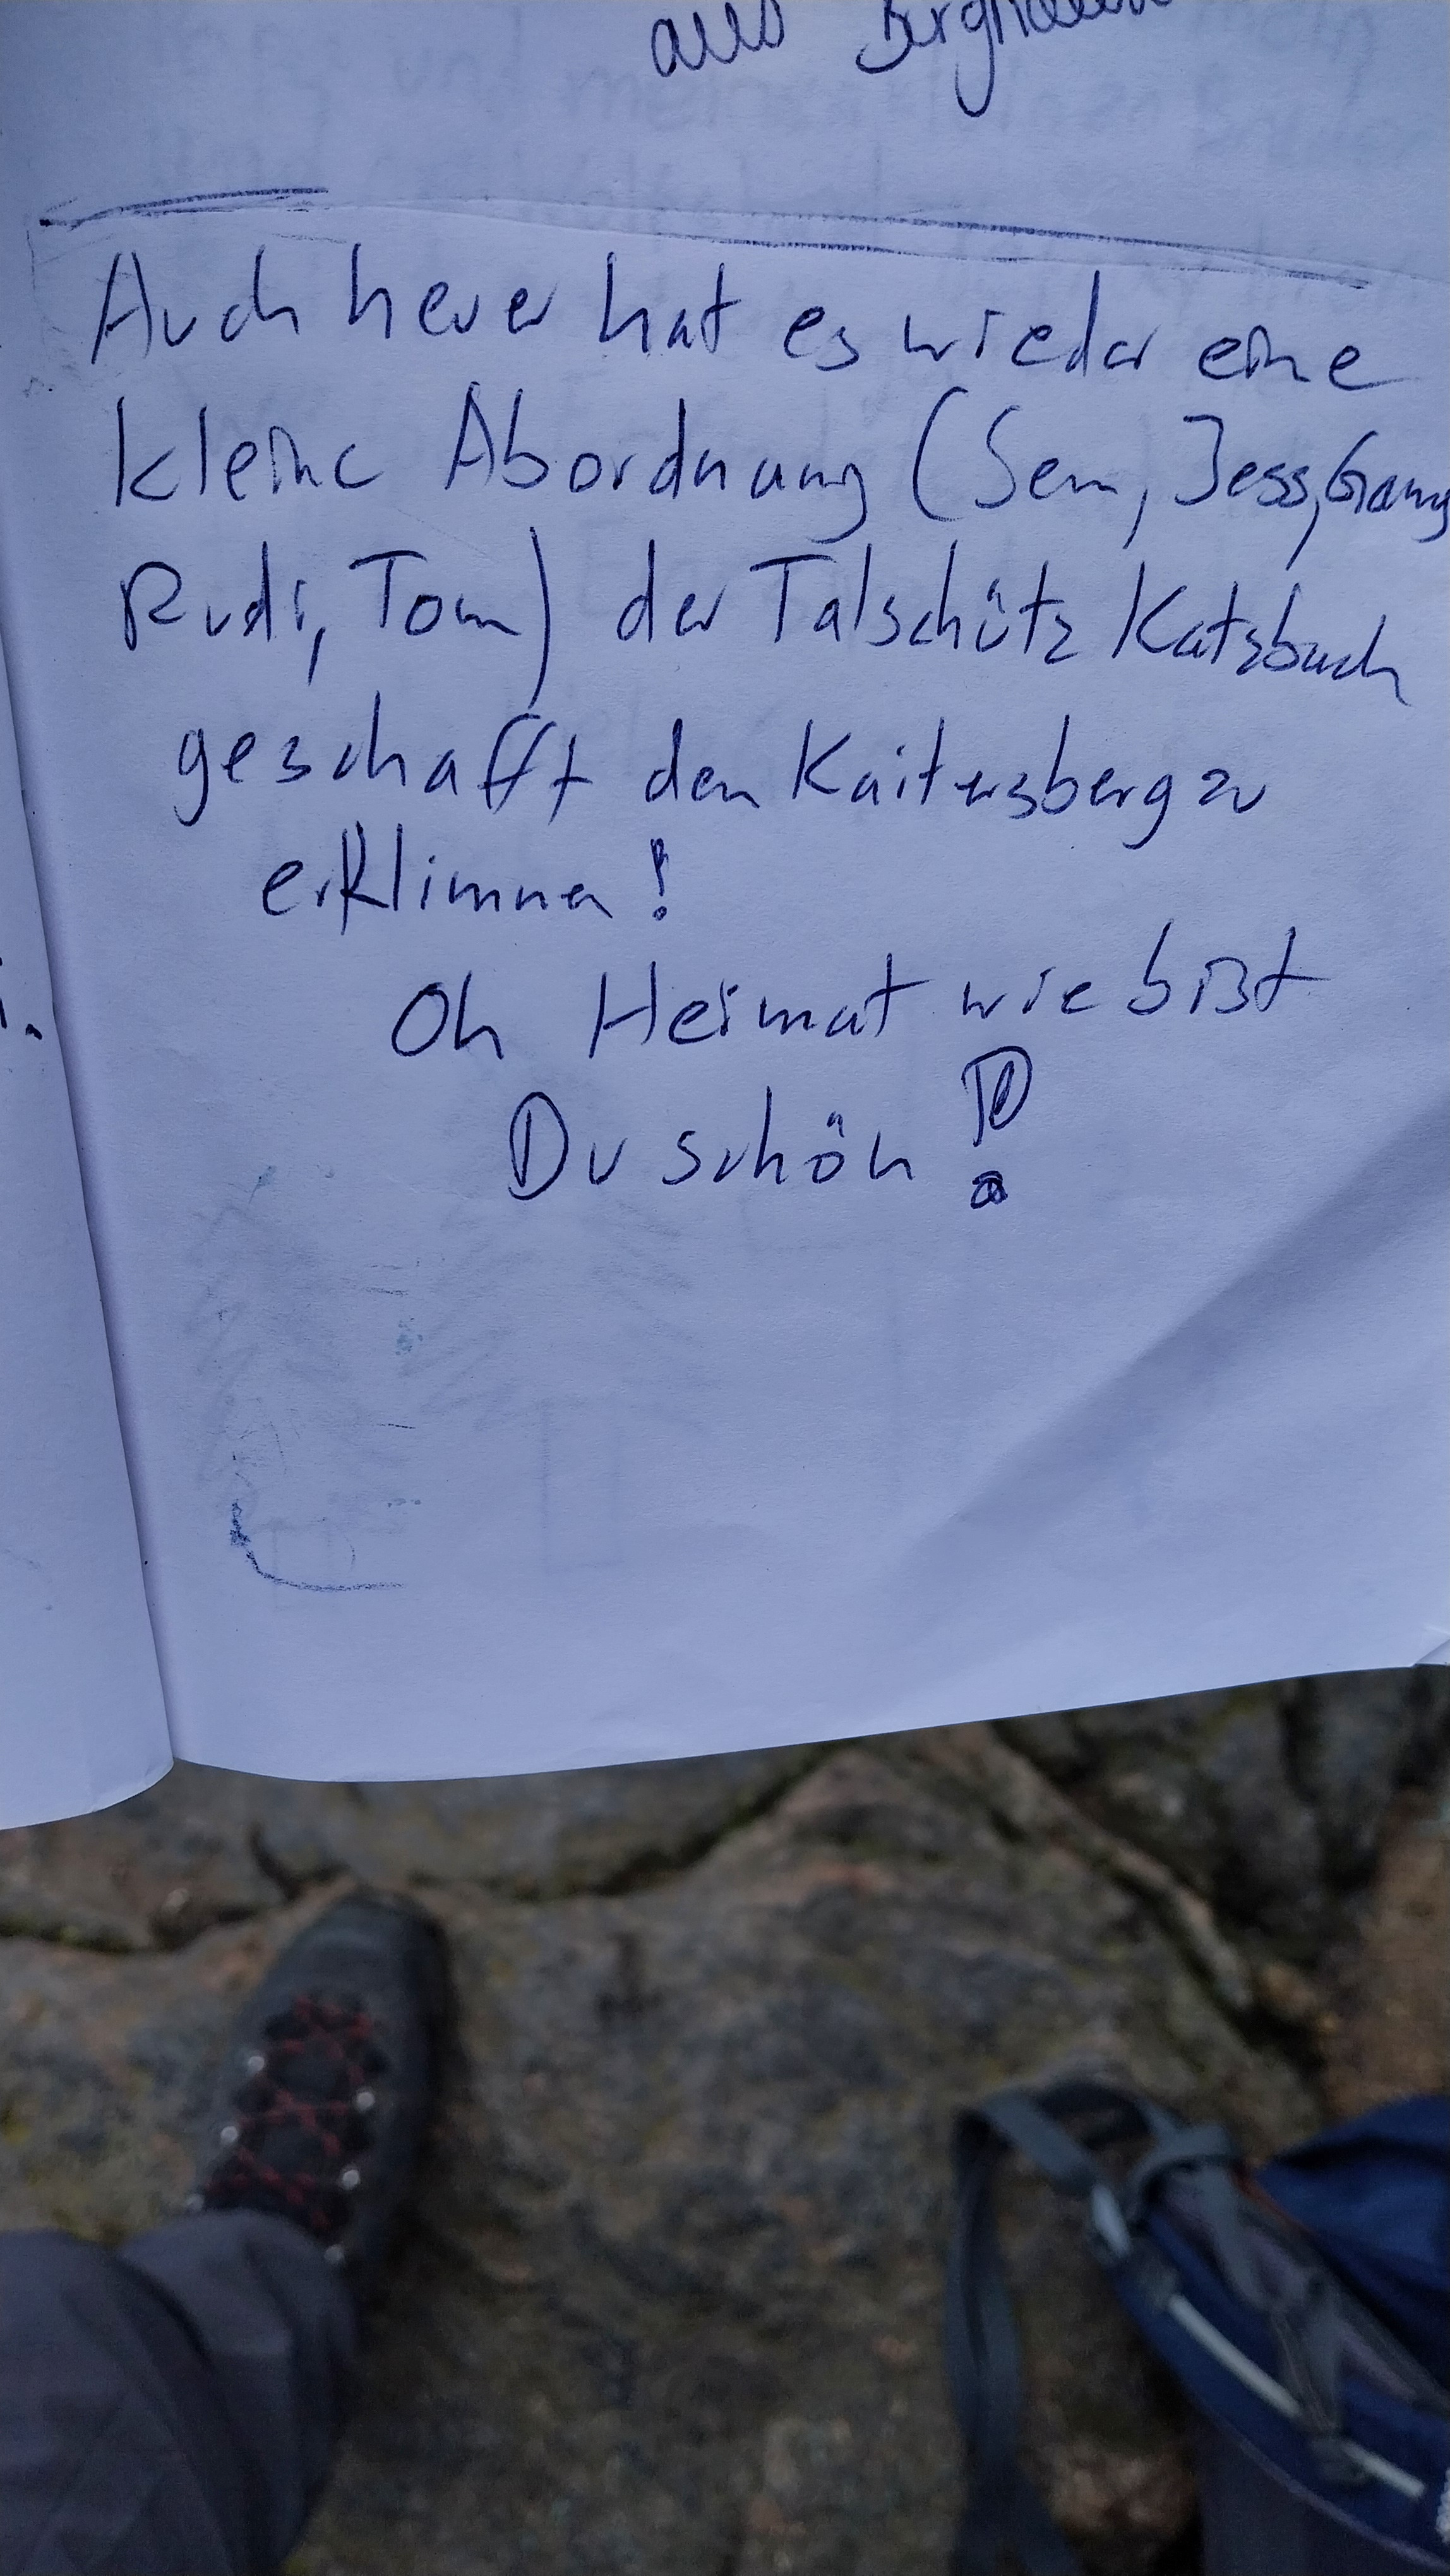 aus
Auch heuer hat es wieder eine
kleine Abordnung (Sem, Jess,
Rudi, Tom) der Talschütz Katzbach
geschafft den Kaitersberg zu
erklimmen!
Oh Heimat wie bist
Du schön!